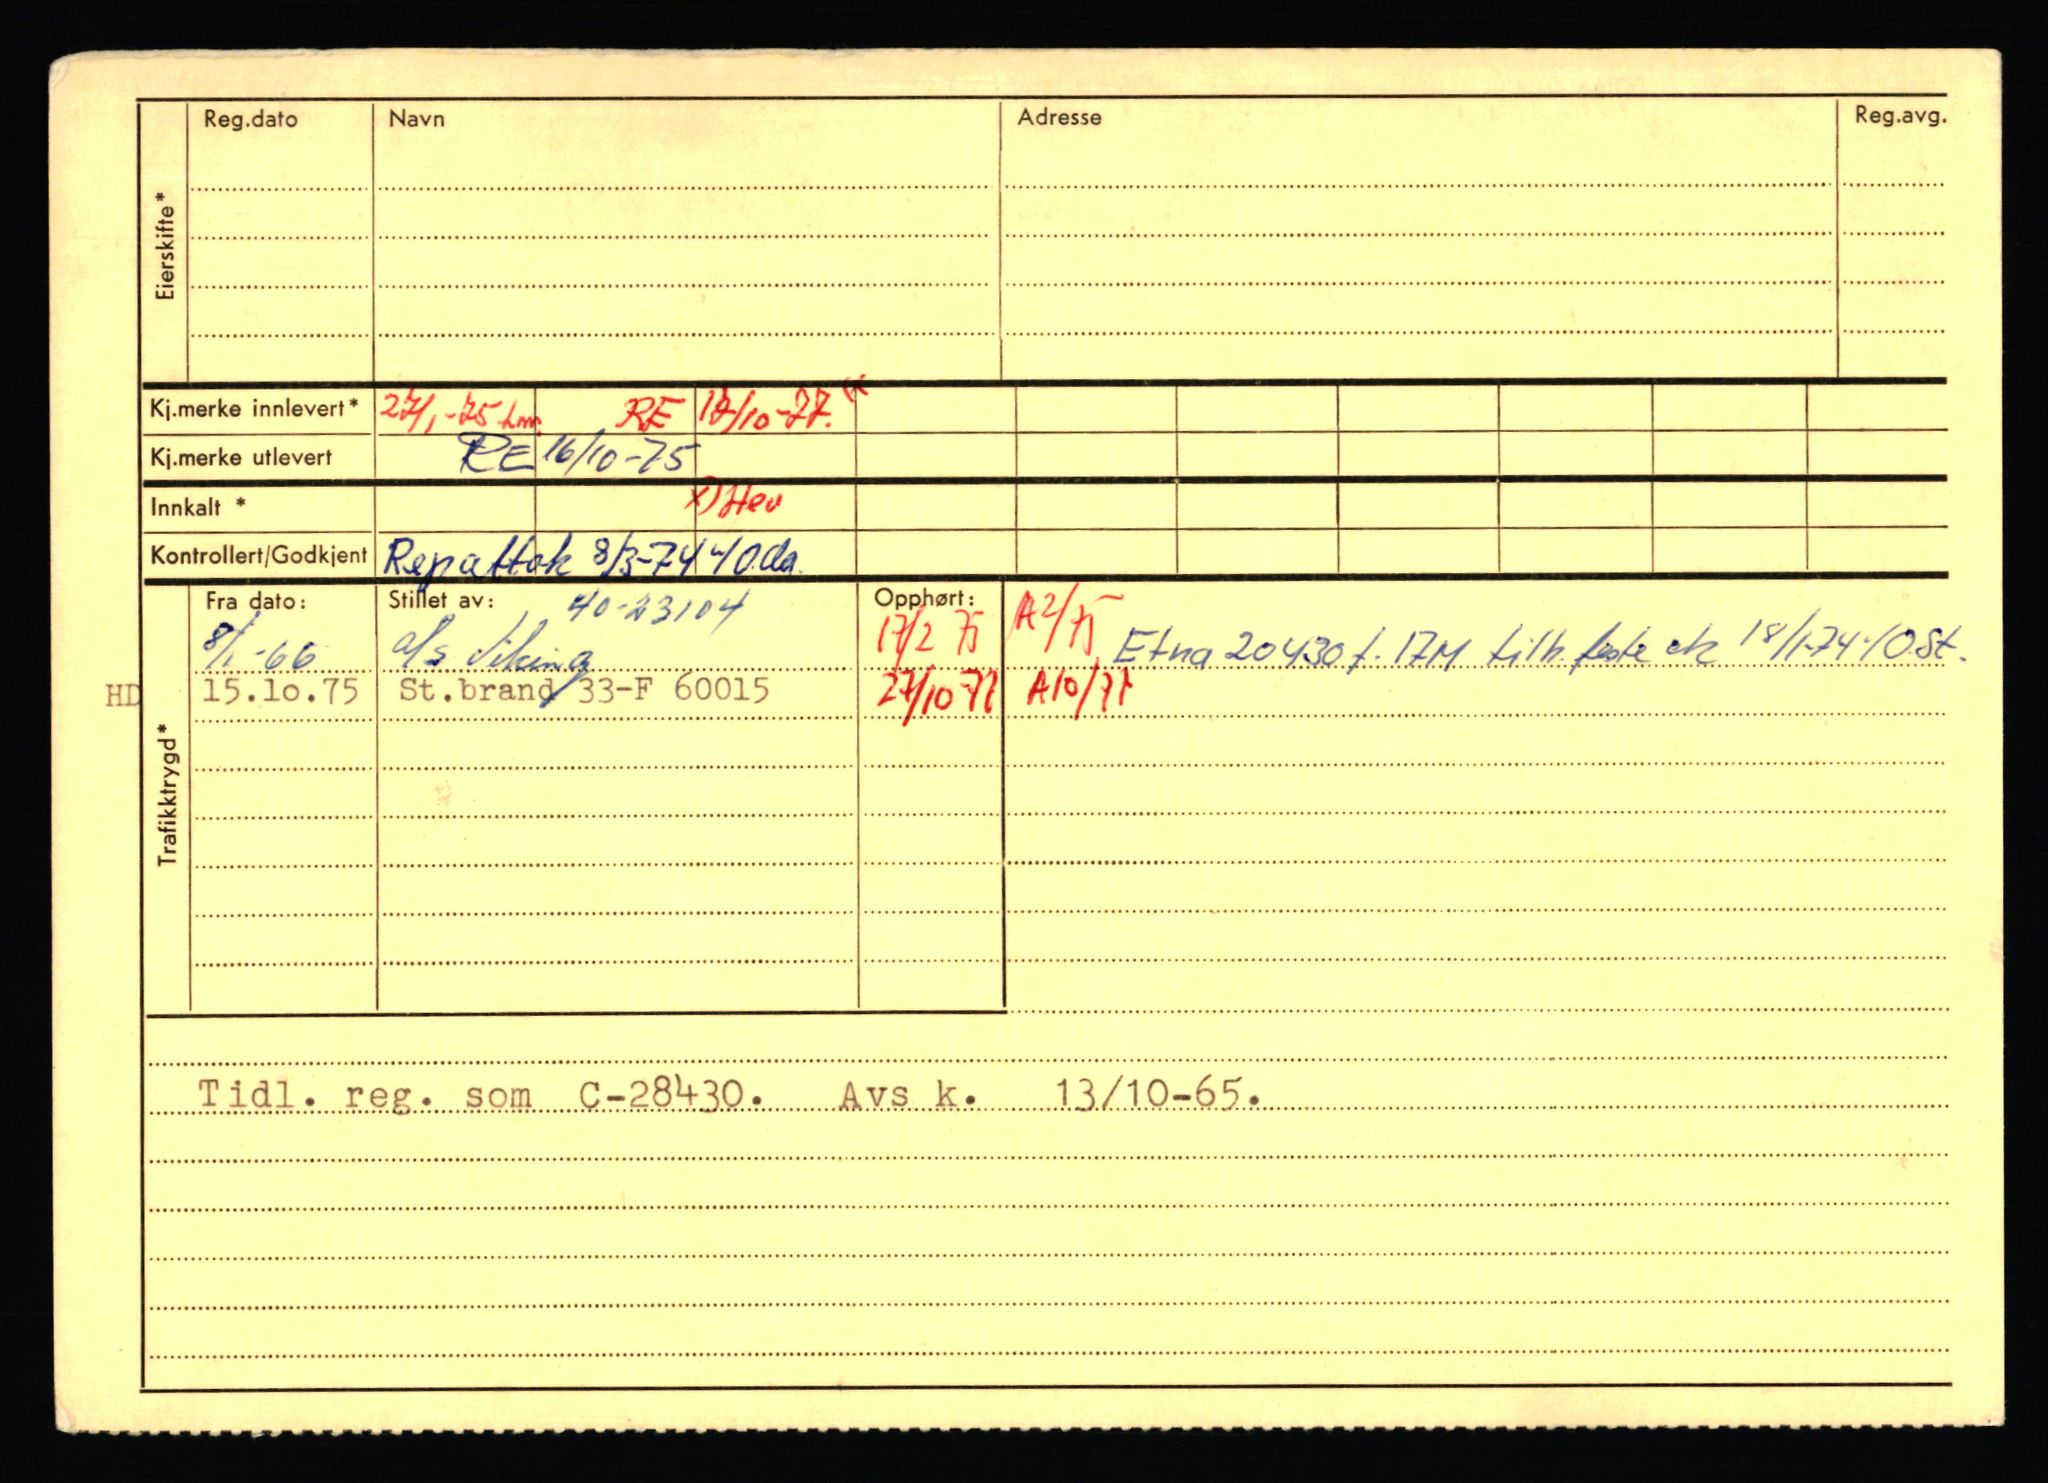 Reg.dato Navn Adresse Reg.avg.
Eierskifte*
Kj.merke innlevert* 27/1-75 RE 17/10-77.
Kj.merke utlevert RE 16/10-75
Innkalt * x) Hev
Kontrollert/Godkjent Rep attak 8/3-74
Trafikktrygd*
Fra dato: Stillet av: 40-23104 Opphørt:
8/1-66 A/s Viking 17/2 75 A 2/75 Etna 20430 f. 17M tilh. feste ok 18/1-74
HD 15.10.75 St.brand 33-F 60015 27/10-77 A10/77
Tidl. reg. som C-28430. Avs k. 13/10-65.